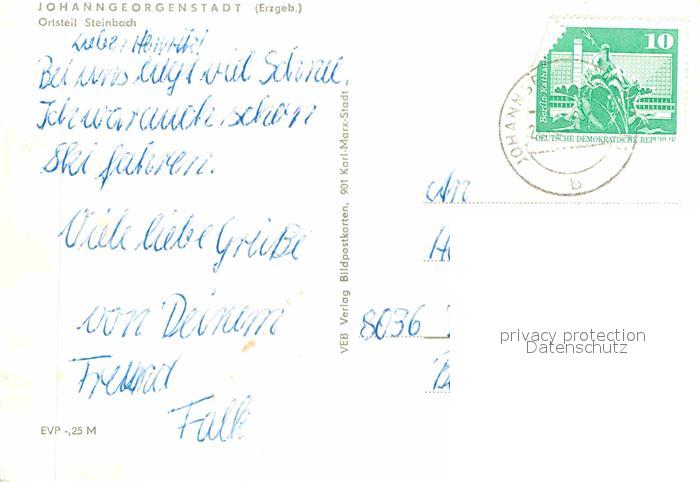 JOHANNGEORGENSTADT (Erzgeb.)
Ortsteil Steinbach
Lieber Heinrich!
Bei uns liegt viel Schnee.
Ich war auch schon
Ski fahren.
Viele liebe Grüße
von Deinem
Freund
Falk
EVP -,25 M
VEB Verlag Bildpostkarten, 901 Karl-Marx-Stadt
10
Berlin
DEUTSCHE DEMOKRATISCHE REPUBLIK
JOHANNGE
b
An
8036
privacy protection
Datenschutz